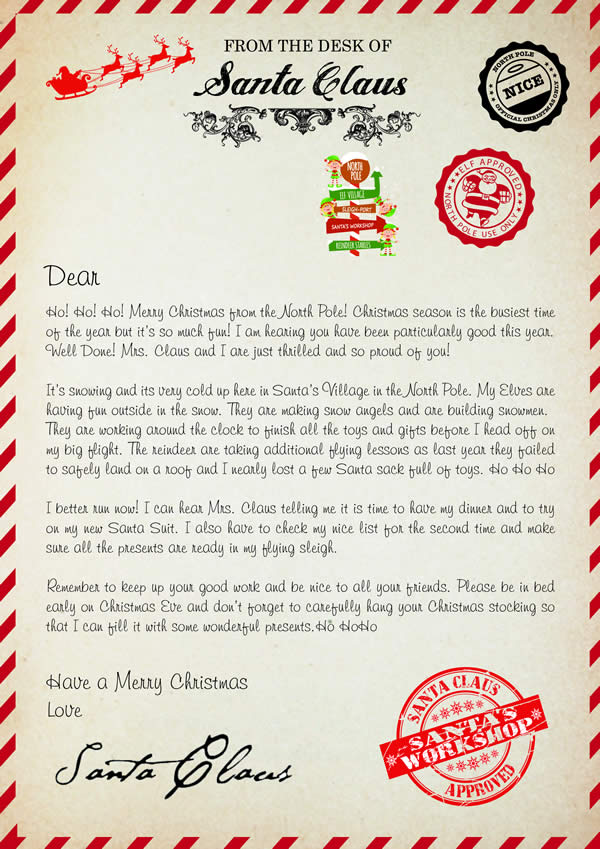 FROM THE DESK OF
Santa Claus
NORTH POLE
NICE
OFFICIAL CHRISTMAS ONLY
NORTH
POLE
ELF VILLAGE
SLEIGH-PORT
SANTA'S WORKSHOP
REINDEER STABLES
ELF APPROVED
NORTH POLE USE ONLY
Dear
Ho! Ho! Ho! Merry Christmas from the North Pole! Christmas season is the busiest time
of the year but it's so much fun! I am hearing you have been particularly good this year.
Well Done! Mrs. Claus and I are just thrilled and so proud of you!
It's snowing and its very cold up here in Santa's Village in the North Pole. My Elves are
having fun outside in the snow. They are making snow angels and are building snowmen.
They are working around the clock to finish all the toys and gifts before I head off on
my big flight. The reindeer are taking additional flying lessons as last year they failed
to safely land on a roof and I nearly lost a few Santa sack full of toys. Ho Ho Ho
I better run now! I can hear Mrs. Claus telling me it is time to have my dinner and to try
on my new Santa Suit. I also have to check my nice list for the second time and make
sure all the presents are ready in my flying sleigh.
Remember to keep up your good work and be nice to all your friends. Please be in bed
early on Christmas Eve and don't forget to carefully hang your Christmas stocking so
that I can fill it with some wonderful presents.Ho HoHo
Have a Merry Christmas
Love
Santa Claus
SANTA CLAUS
SANTA'S
WORKSHOP
APPROVED